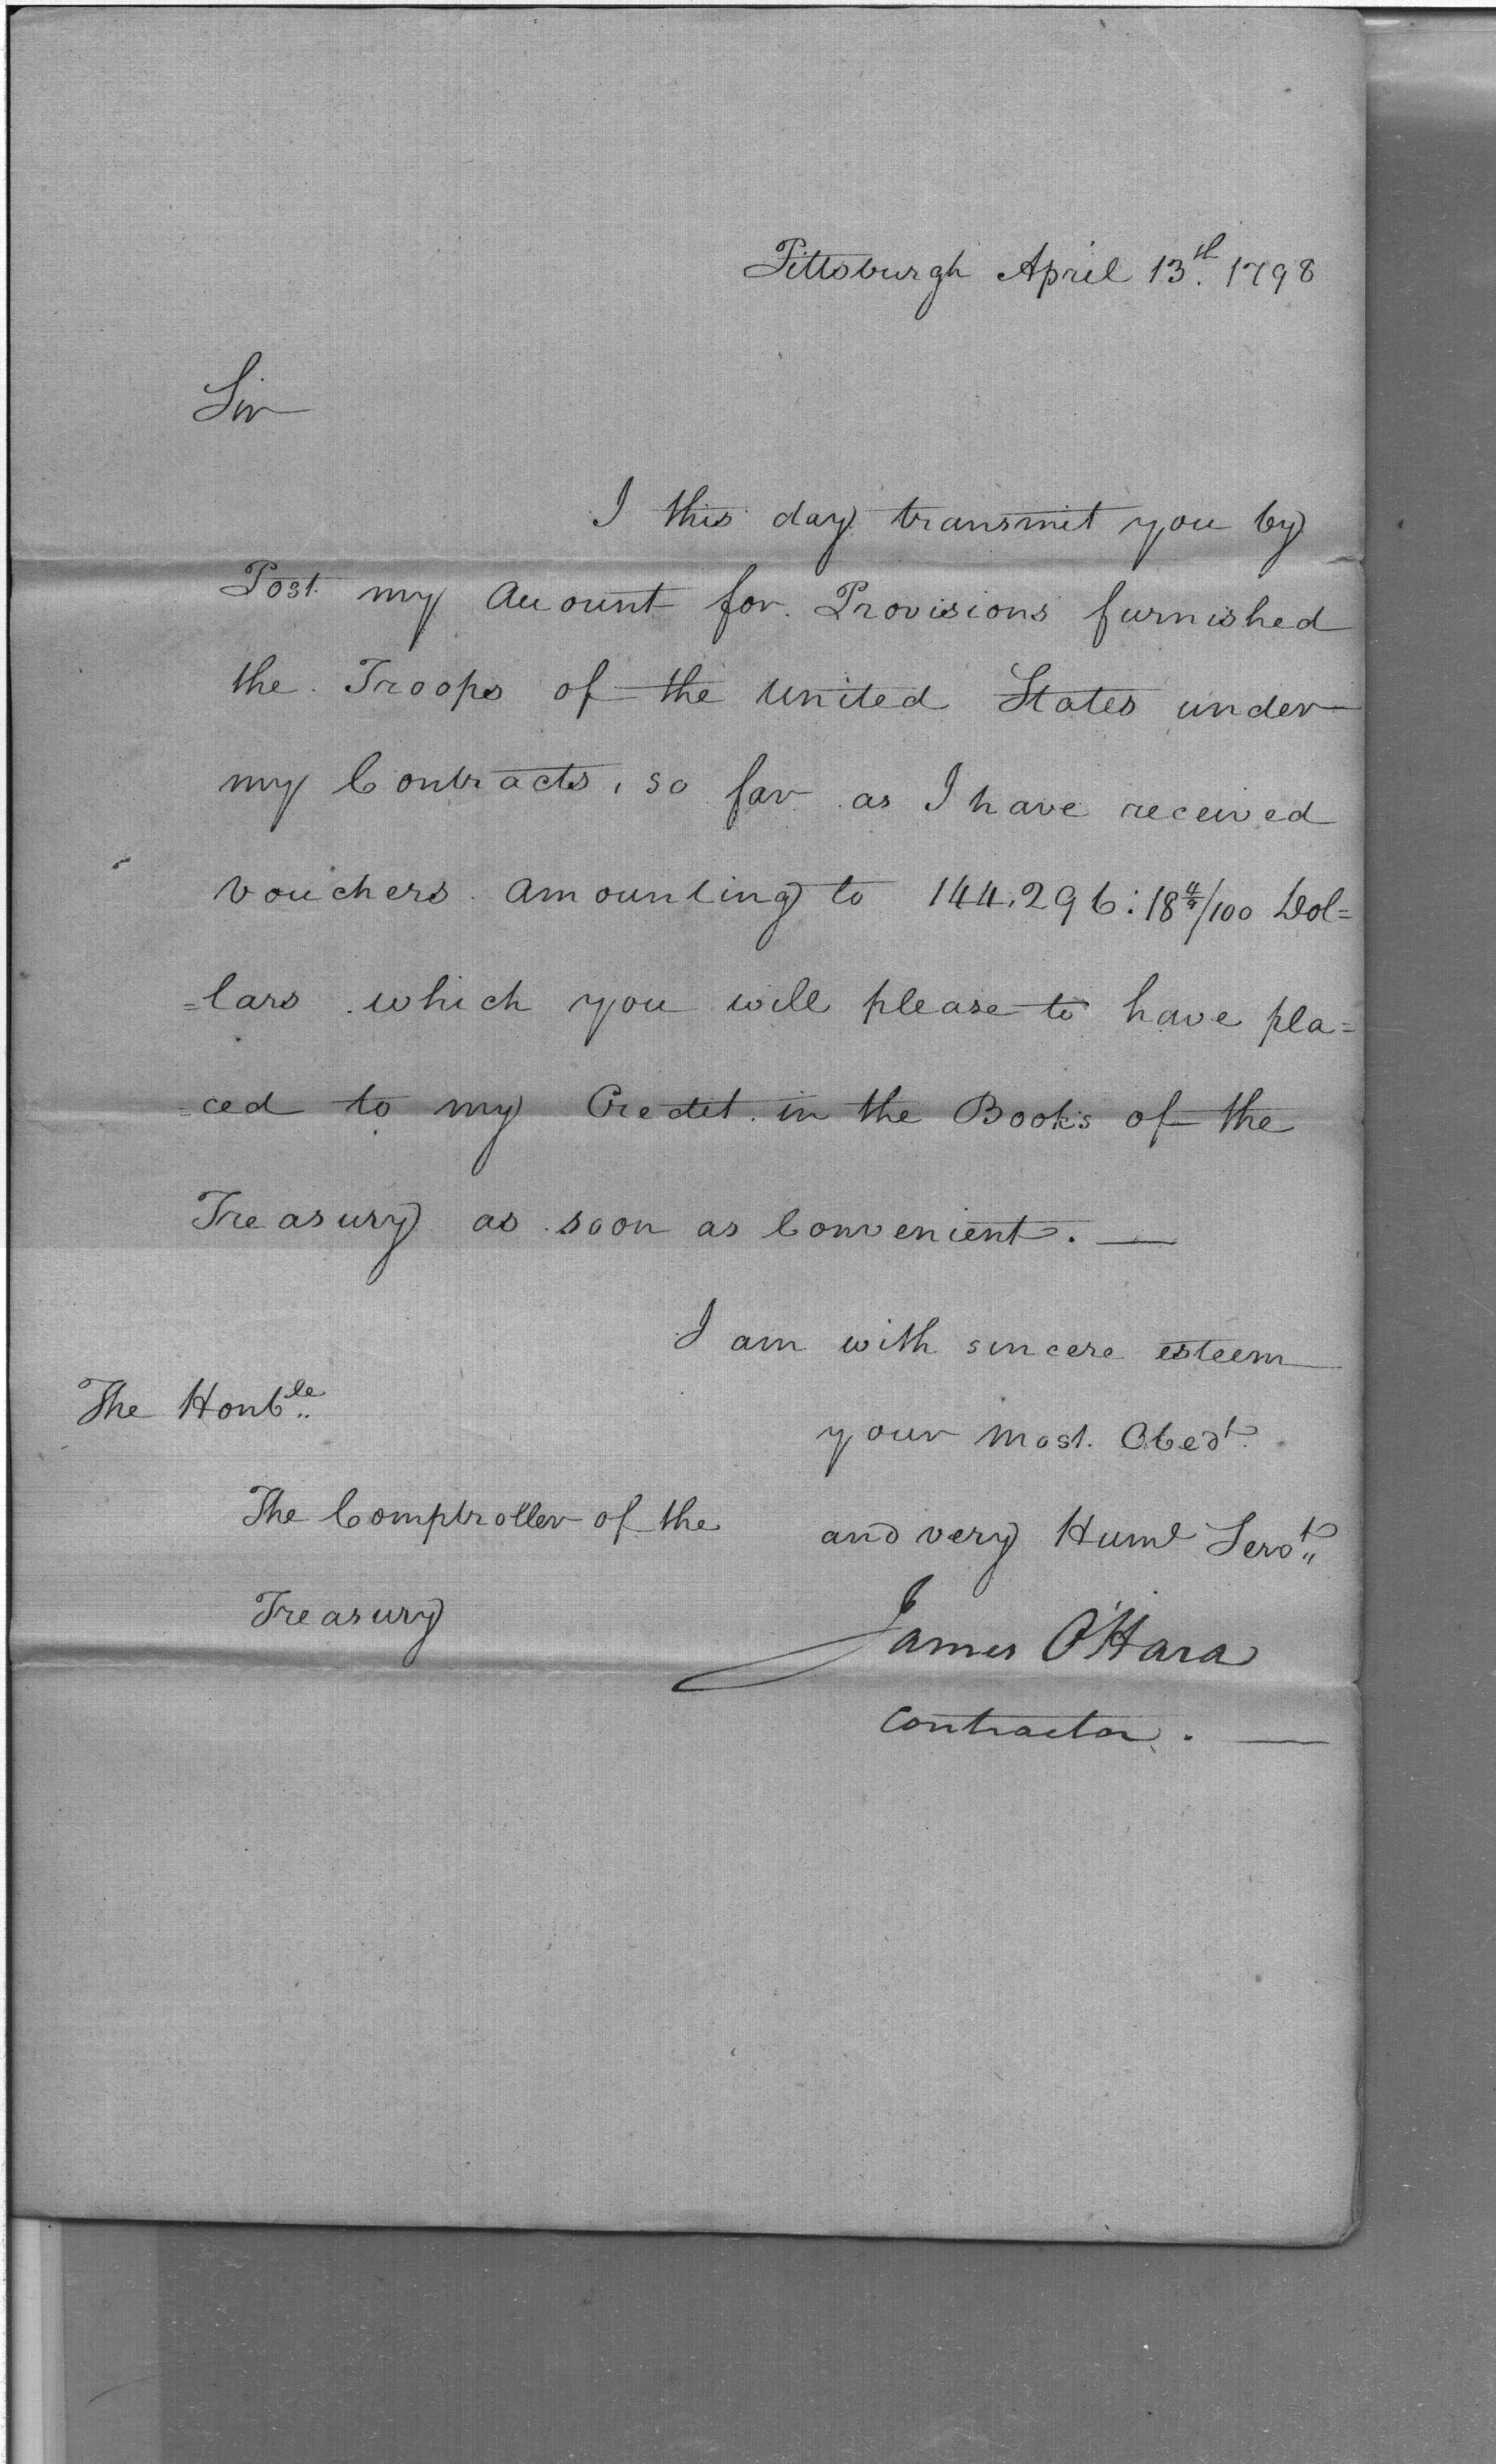 Pittsburgh April 13th. 1798
Sir
I this day transmit you by
Post my Account for Provisions furnished
the Troops of the United States under
my Contracts, so far as I have received
vouchers amounting to 144,296:18 4/5/100 Dol=
=lars which you will please to have pla=
=ced to my Credit in the Books of the
Treasury as soon as Convenient. —
I am with sincere esteem
your most Obedt.
and very Huml Servt"
James O'Hara
Contractor. —
The Honble"
The Comptroller of the
Treasury